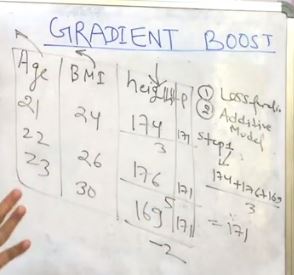 GRADIENT BOOST
Age BMI height P
21 24 174 171
3
22 26 176 171
5
23 30 169 171
-2
① Loss
② Additive
Model
Step 1
174+176+169
3
= 171